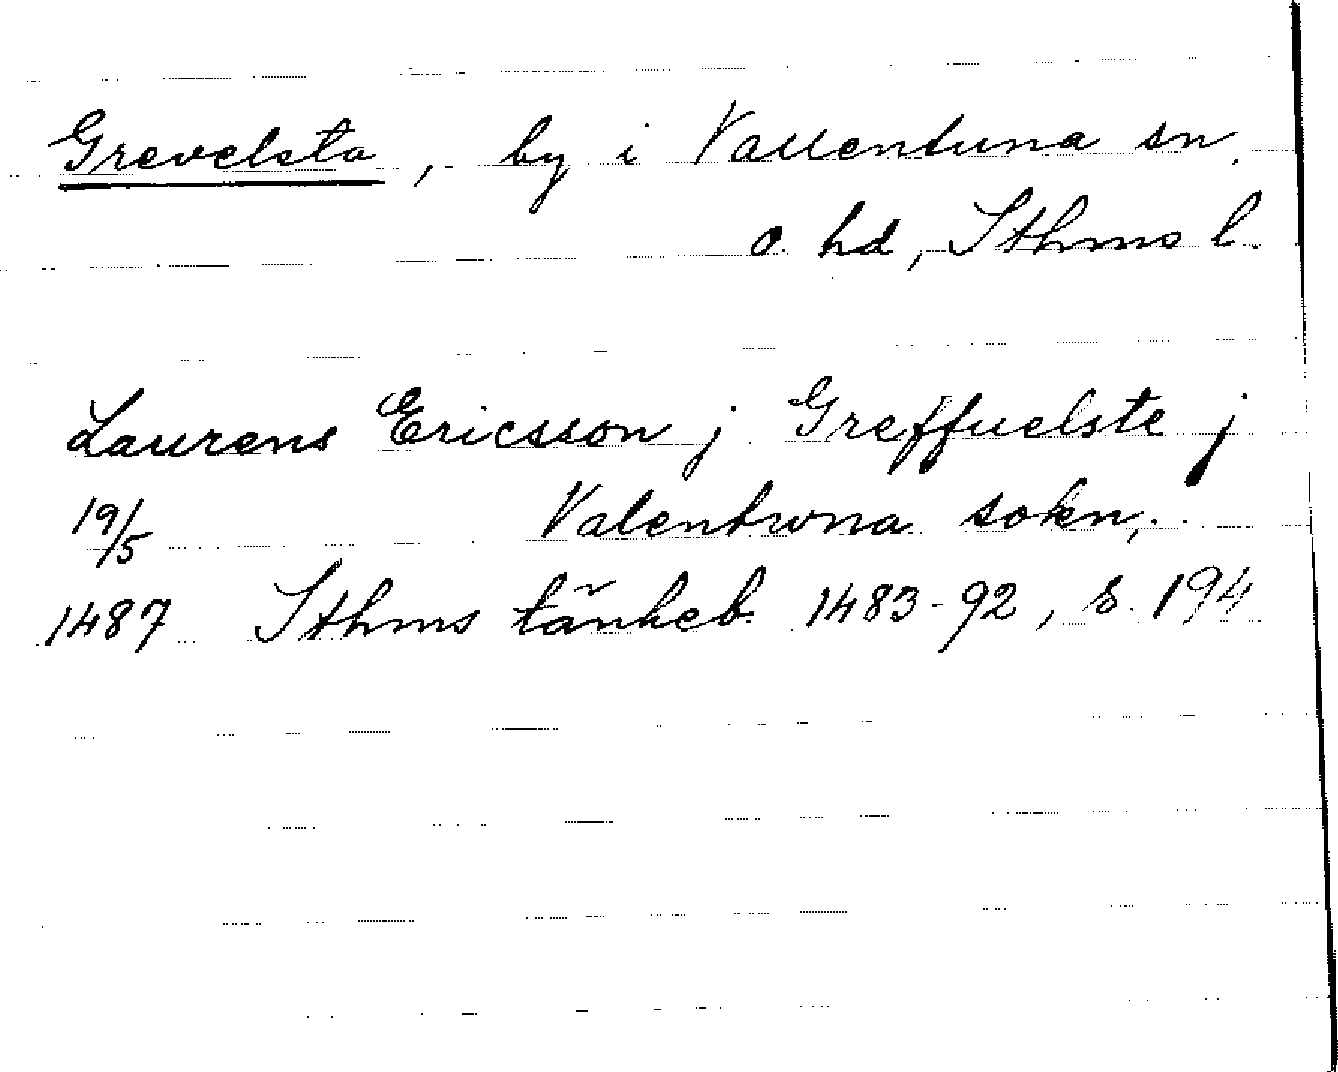 Grevelsta, by i Vallentuna sn.
o. hd, Sthms l.
Laurens Ericsson j Greffuelste j
19/5 Valentwna sokn,
1487 Sthms tänkeb. 1483-92, s. 194